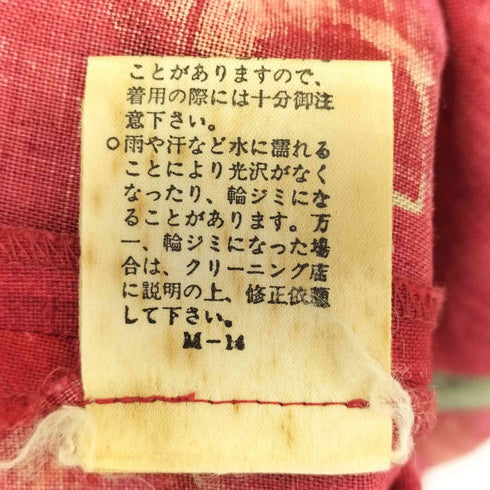 ことがありますので、
着用の際には十分御注
意下さい。
○雨や汗など水に濡れる
ことにより光沢がなく
なったり、輪ジミにな
ることがあります。万
一、輪ジミになった場
合は、クリーニング店
に説明の上、修正依頼
して下さい。
M-14